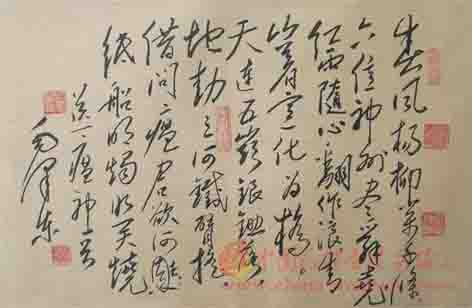 春风杨柳万千條
六億神州尽舜尧
红雨随心翻作浪青
山着意化为橋
天連五嶺銀鋤落
地動三河鐵臂摇
借问瘟君欲何
纸船明烛照天烧
送瘟神
毛泽东